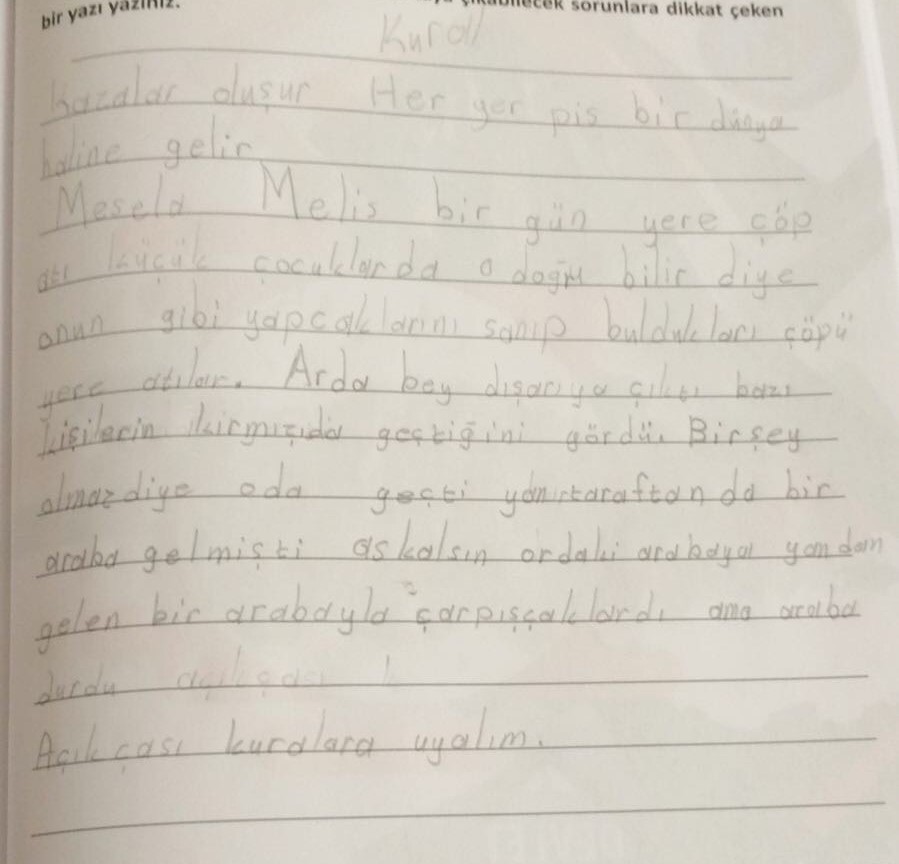 bir yazı yazınız. çıkabilecek sorunlara dikkat çeken
Kurall
kazalar oluşur Her yer pis bir dünya
haline gelir
Mesela Melis bir gün yere çöp
attı küçük çocuklarda o doğru bilir diye
onun gibi yapcaklarını sanıp buldukları çöpü
yere atılar. Arda bey dışarıya çıktı bazı
kişilerin kırmızıda geçtiğini gördü. Birşey
olmazdiye oda geçti yan taraftan da bir
araba gelmişti as kalsın ordaki arabaya yandan
gelen bir arabayla çarpışçaklardı ama araba
durdu açıkçası
Açıkçası kuralara uyalım.